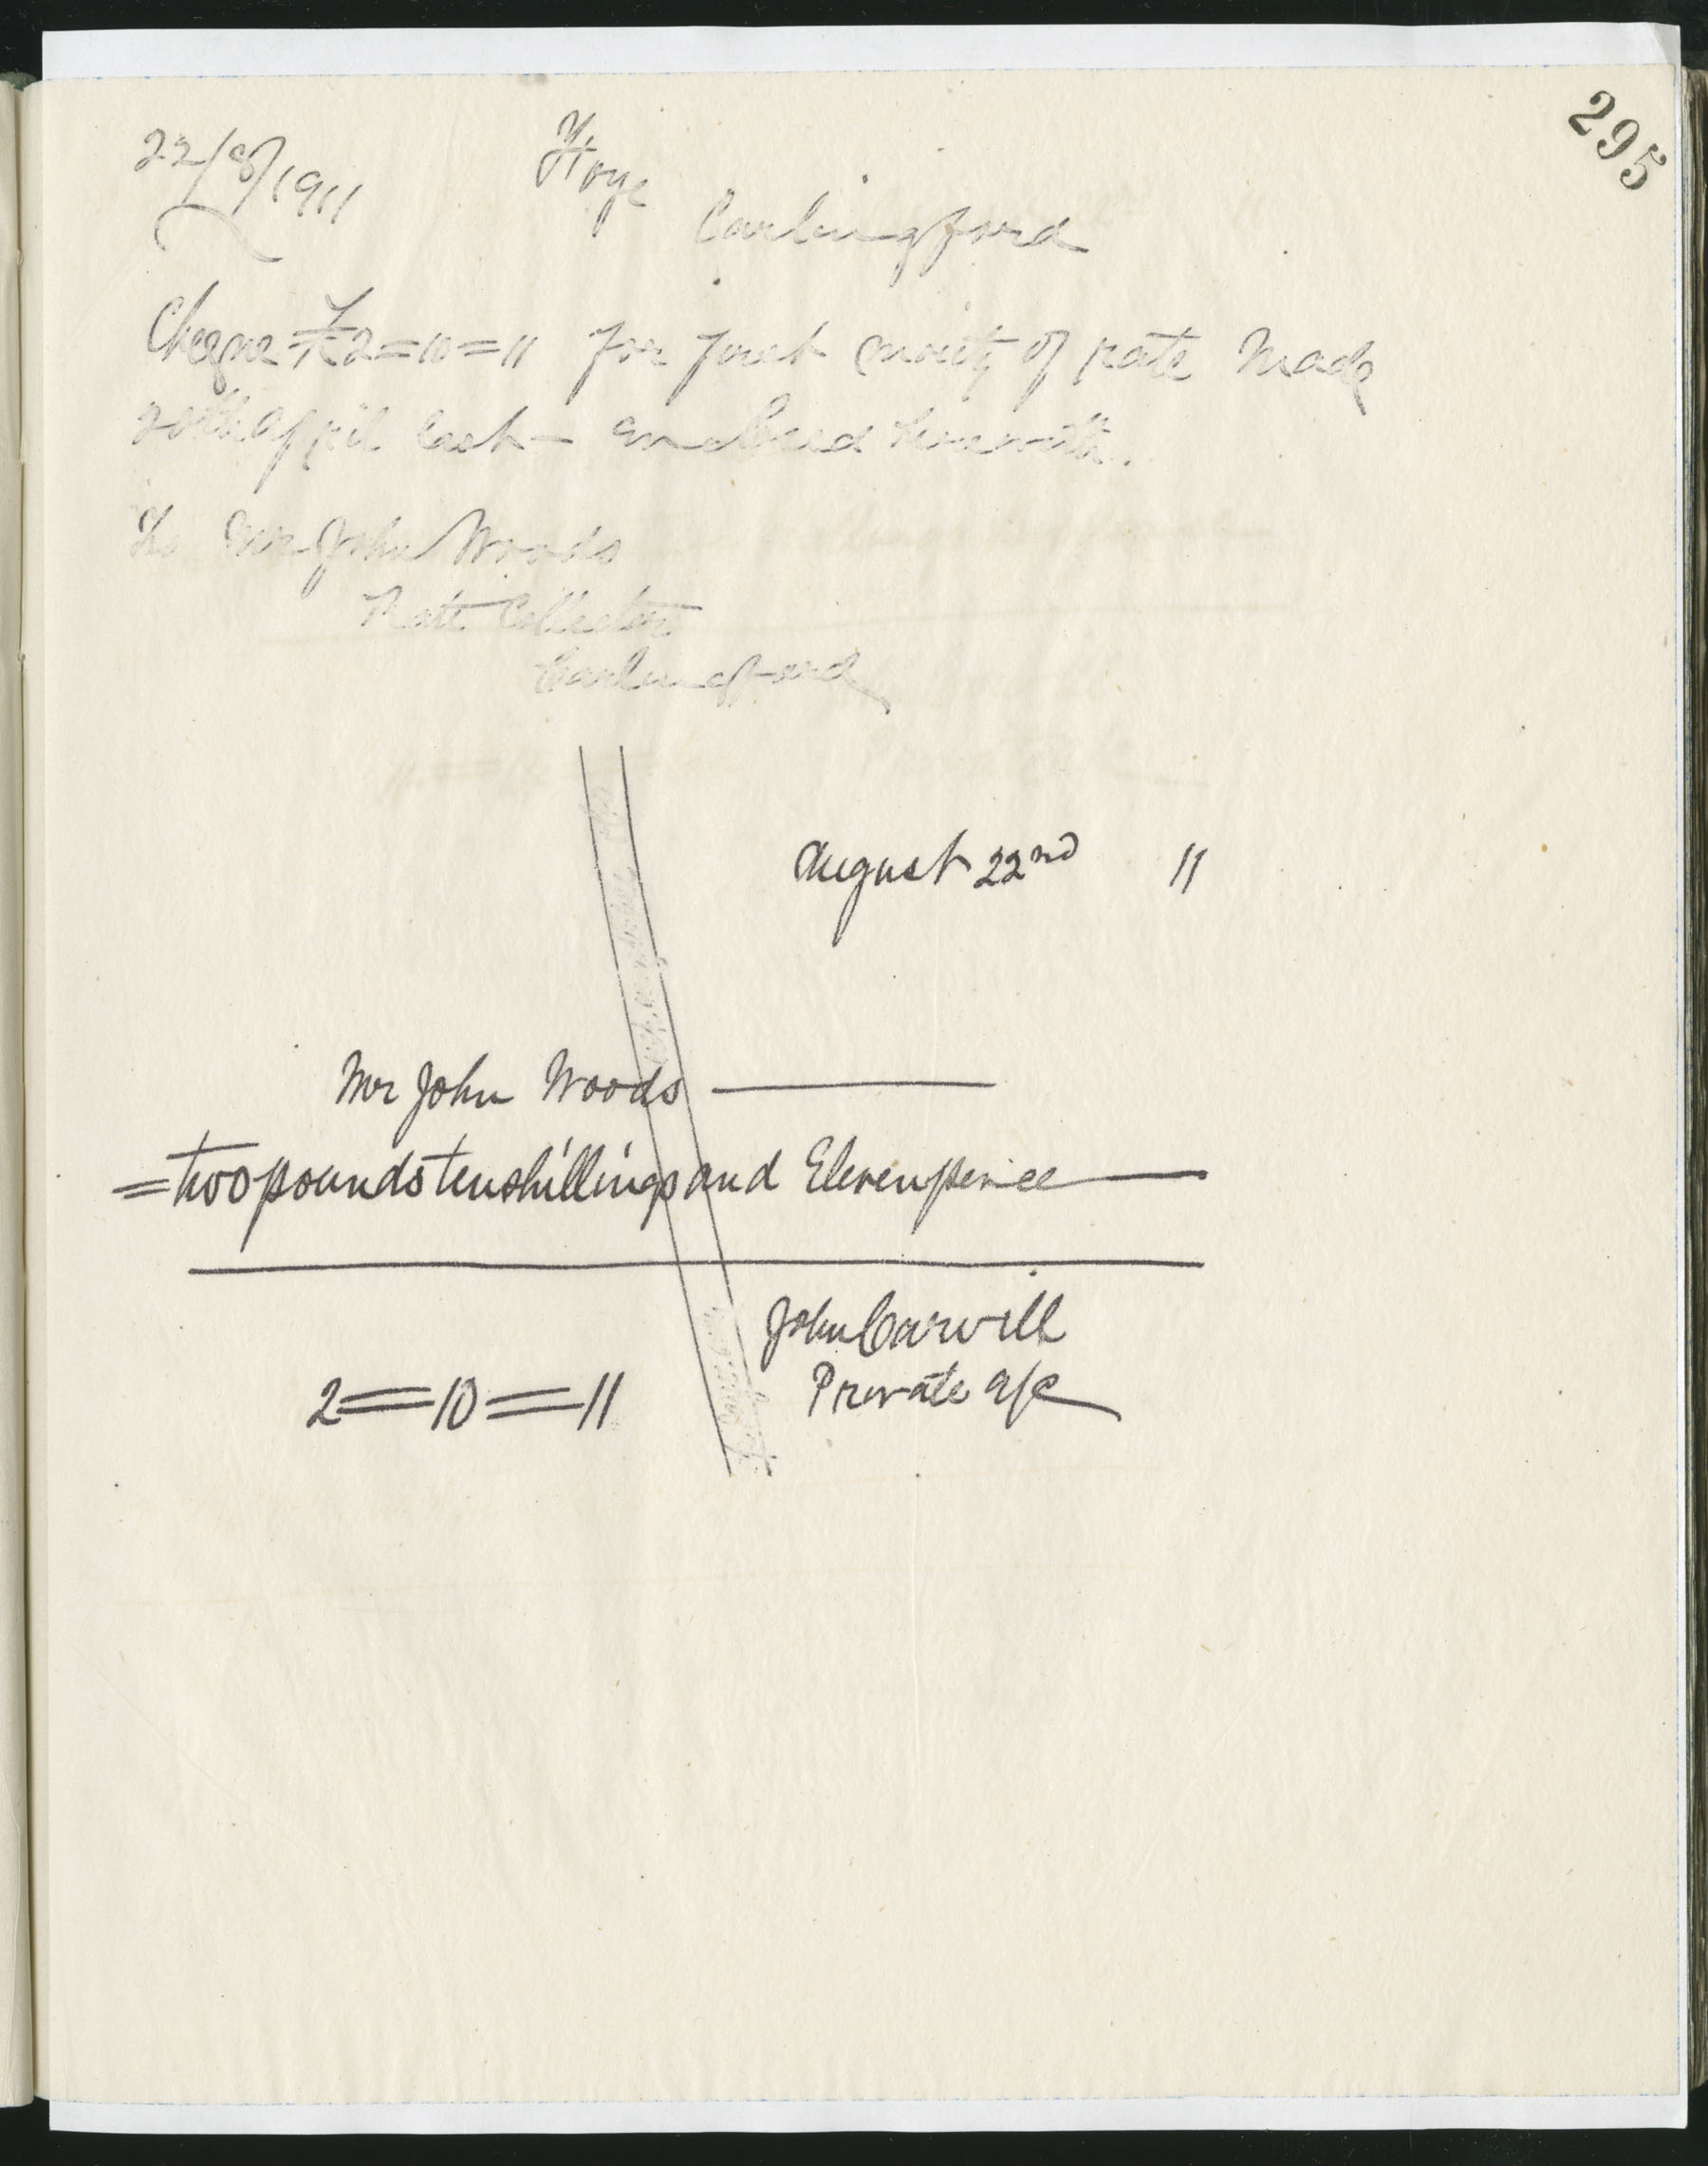 295
22/8/1911
Carlingford
Cheque £2=10=11 for first moiety of rate made
20th April last — enclosed herewith.
To Mr John Woods
Rate Collector
Carlingford
August 22nd 11
Mr John Woods
= two pounds ten shillings and Eleven pence
John Carvill
Private a/c
2=10=11